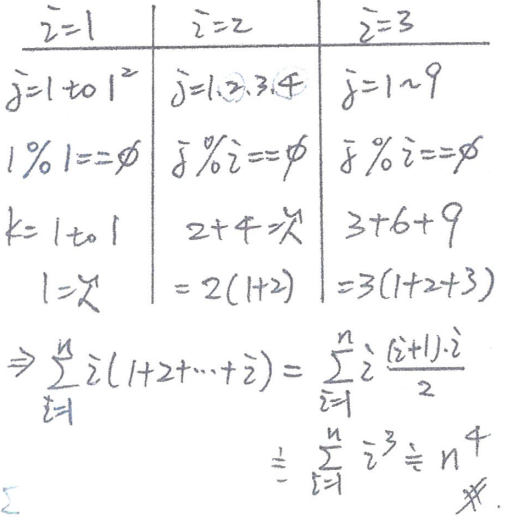 i=1 i=2 i=3
j=1 to 1² j=1.2.3.4 j=1~9
1%1==0 j%i==0 j%i==0
k=1 to 1 2+4=次 3+6+9
1=次 =2(1+2) =3(1+2+3)
⇒ Σ_{i=1}^{n} i(1+2+⋯+i) = Σ_{i=1}^{n} i (i+1)·i/2
≐ Σ_{i=1}^{n} i³ ≐ n⁴
Σ